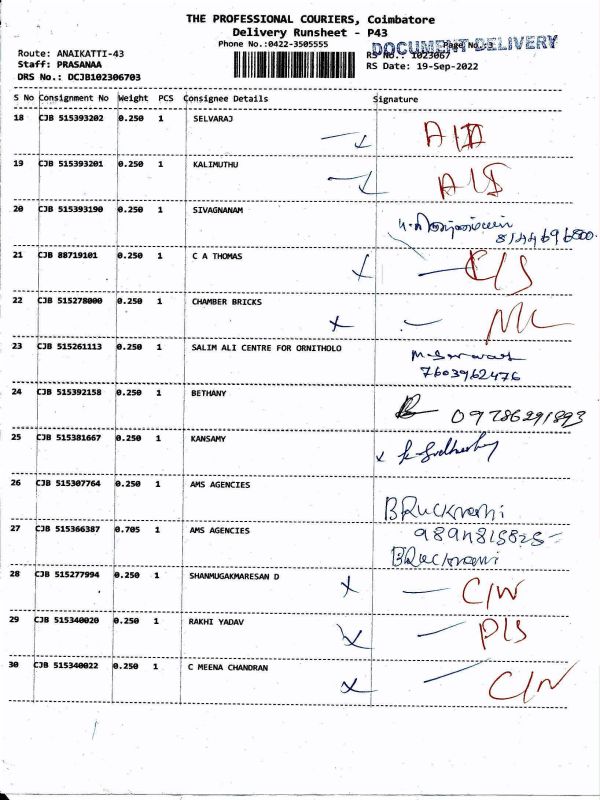 THE PROFESSIONAL COURIERS, Coimbatore
Delivery Runsheet - P43
Phone No.:0422-3505555
DOCUMENT DELIVERY
Page No.:3
Route: ANAIKATTI-43
RS No.: 1023067
Staff: PRASANAA
RS Date: 19-Sep-2022
DRS No.: DCJB102306703
S No Consignment No Weight PCS Consignee Details Signature
18 CJB 515393202 0.250 1 SELVARAJ
19 CJB 515393201 0.250 1 KALIMUTHU
20 CJB 515393190 0.250 1 SIVAGNANAM
8144696800
21 CJB 88719101 0.250 1 C A THOMAS C/S
22 CJB 515278000 0.250 1 CHAMBER BRICKS
23 CJB 515261113 0.250 1 SALIM ALI CENTRE FOR ORNITHOLO
7603962476
24 CJB 515392158 0.250 1 BETHANY 09786291893
25 CJB 515381667 0.250 1 KANSAMY
26 CJB 515307764 0.250 1 AMS AGENCIES
27 CJB 515366387 0.705 1 AMS AGENCIES
28 CJB 515277994 0.250 1 SHANMUGAKMARESAN D C/W
29 CJB 515340020 0.250 1 RAKHI YADAV P/S
30 CJB 515340022 0.250 1 C MEENA CHANDRAN